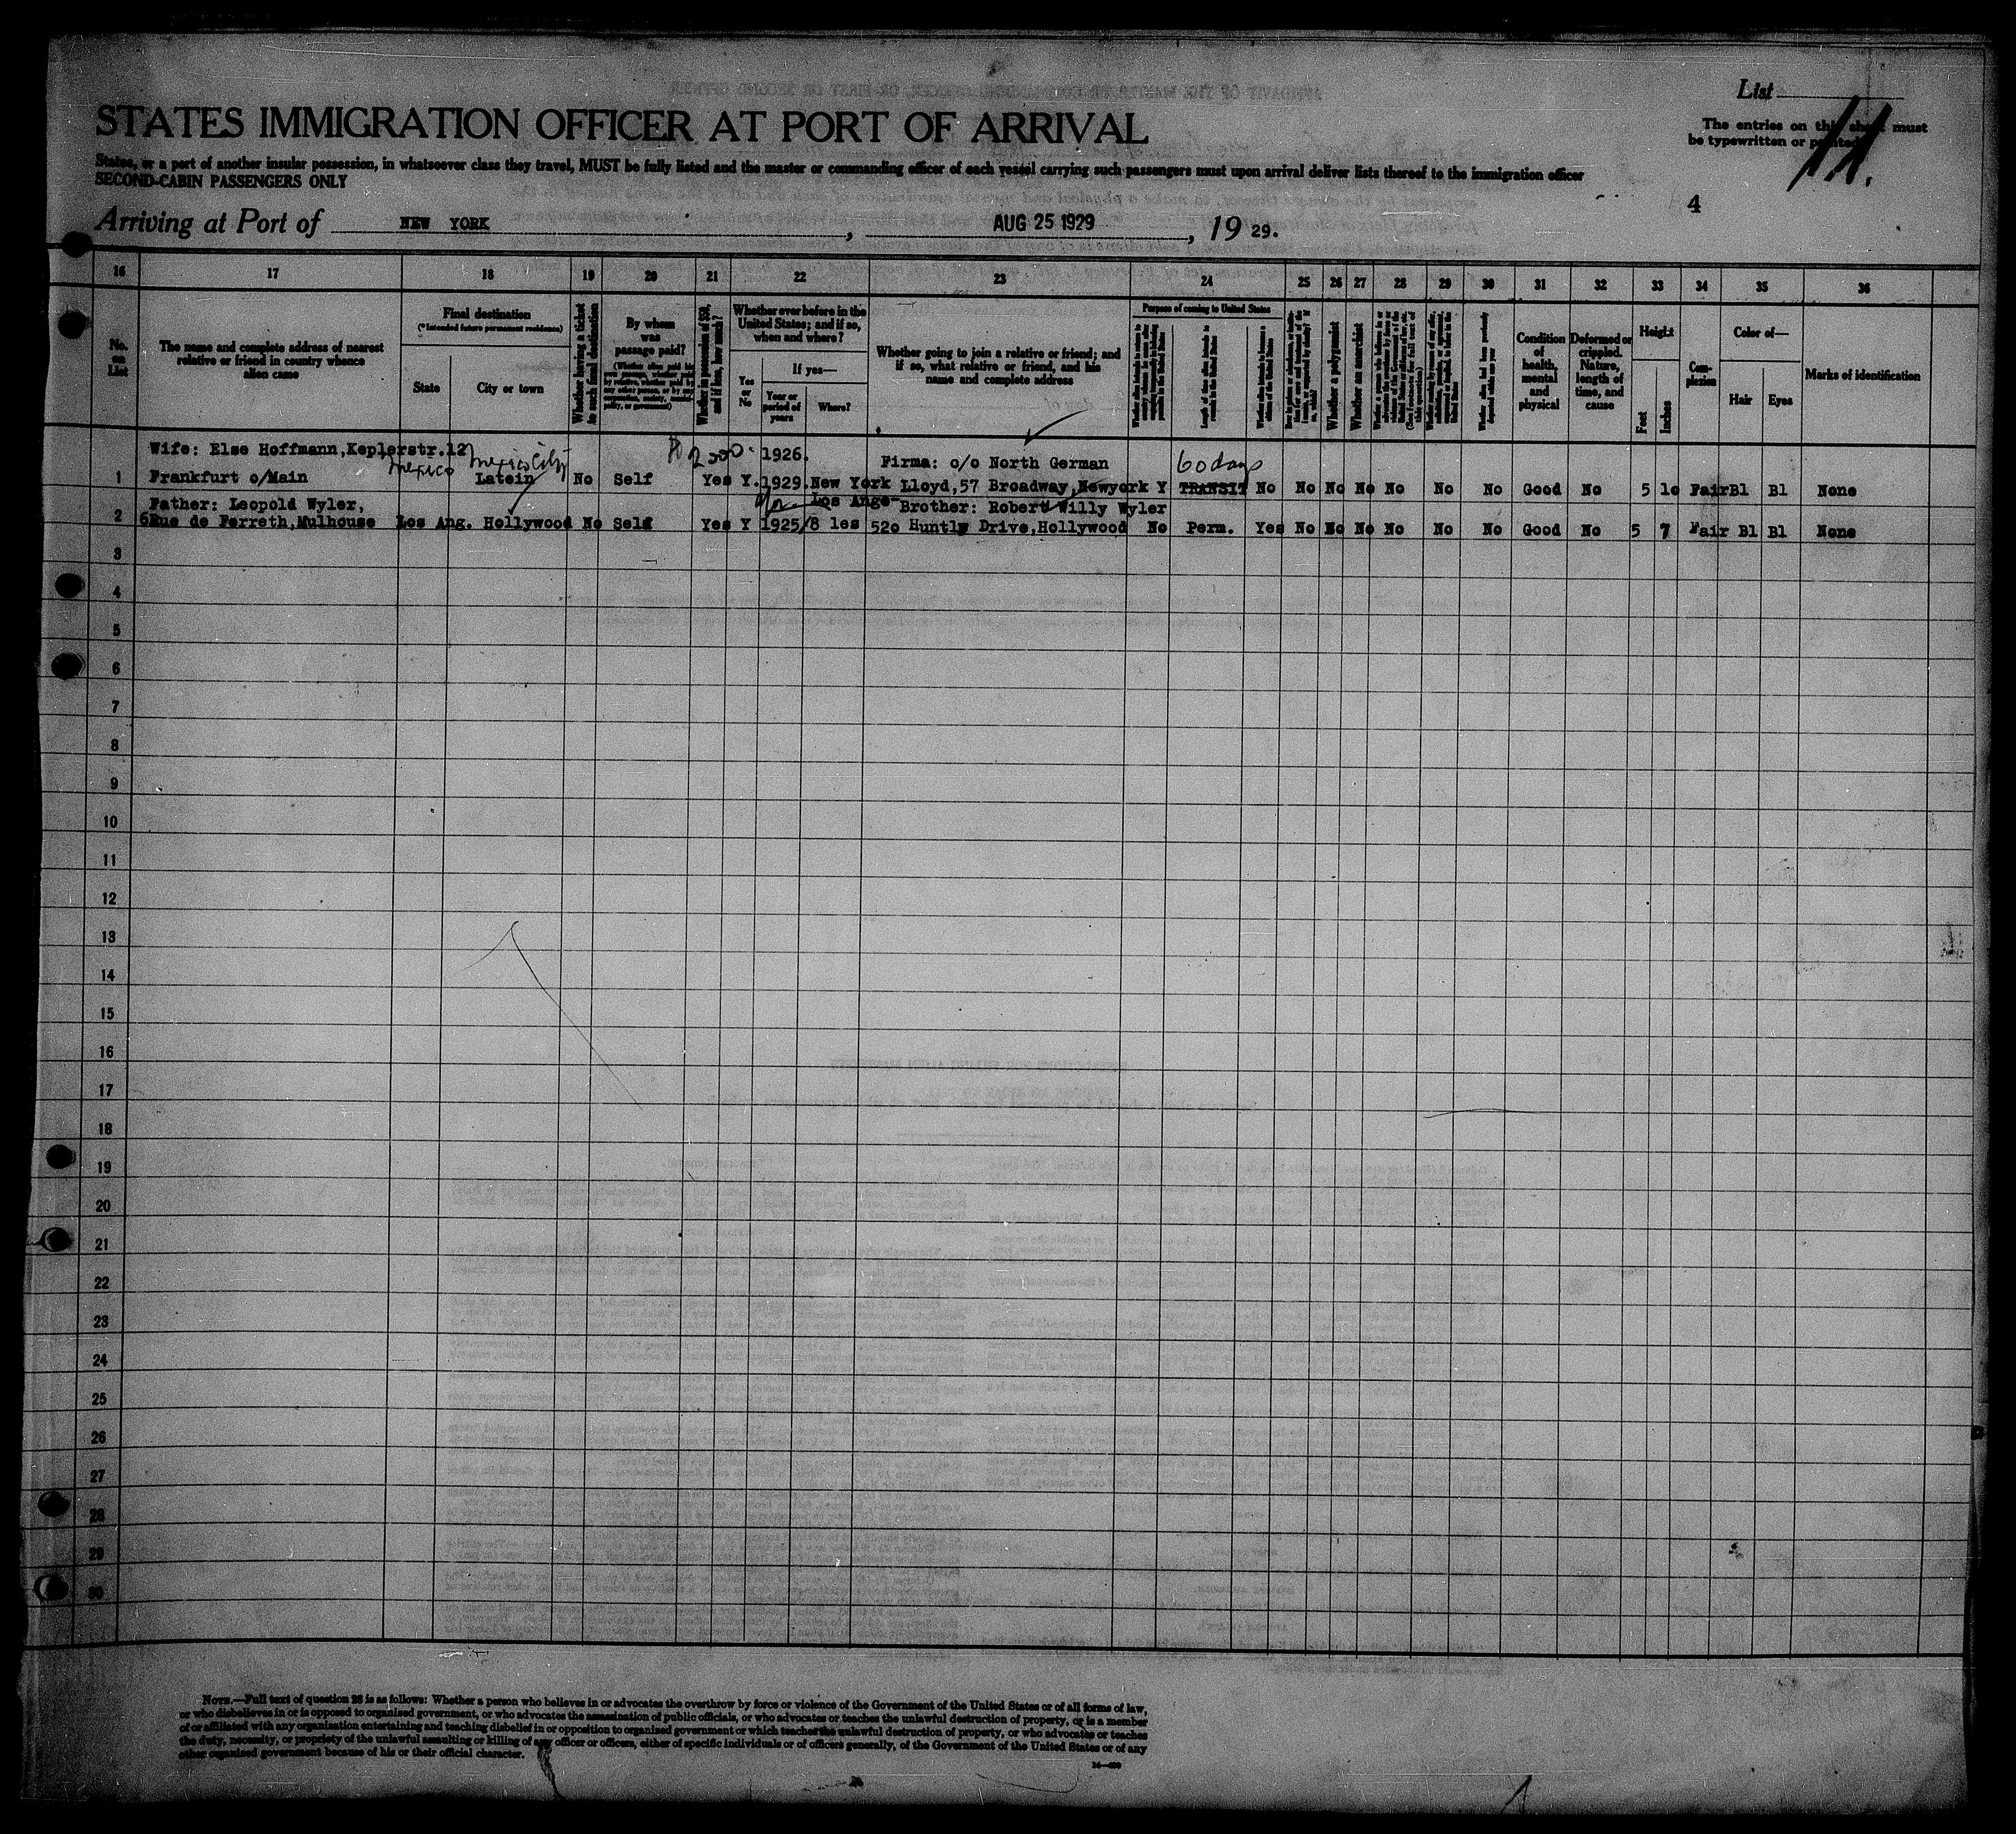 List
11.
STATES IMMIGRATION OFFICER AT PORT OF ARRIVAL
The entries on this sheet must
be typewritten or printed.
States, or a port of another insular possession, in whatsoever class they travel, MUST be fully listed and the master or commanding officer of each vessel carrying such passengers must upon arrival deliver lists thereof to the immigration officer
SECOND-CABIN PASSENGERS ONLY
4
Arriving at Port of NEW YORK , AUG 25 1929 , 19 29.
16 17 18 19 20 21 22 23 24 25 26 27 28 29 30 31 32 33 34 35 36
No. on List
The name and complete address of nearest relative or friend in country whence alien came
Final destination
(*Intended future permanent residence)
State
City or town
Whether having a ticket to such final destination
By whom was passage paid?
Whether in possession of $50, and if less, how much?
Whether ever before in the United States; and if so, when and where?
Yes or No
If yes—
Year or period of years
Where?
Whether going to join a relative or friend; and if so, what relative or friend, and his name and complete address
Purpose of coming to United States
Whether a polygamist
Whether an anarchist
Condition of health, mental and physical
Deformed or crippled. Nature, length of time, and cause
Height
Feet
Inches
Com-plexion
Color of—
Hair
Eyes
Marks of identification
Wife: Else Hoffmann,Keplerstr.12 $2000. 1926. Firma: c/o North German 60 days
Mexico Mexico City
1 Frankfurt o/Main Latein No Self Yes Y. 1929. New York Lloyd,57 Broadway,Newyork Y TRANSIT No No No No No No No Good No 5 10 Fair Bl Bl None
Father: Leopold Wyler, Los Ange- Brother: Robert Willy Wyler
2 6Rue de Ferreth,Mulhouse Los Ang. Hollywood No Self Yes Y 1925/8 les 520 Huntly Drive,Hollywood No Perm. Yes No No No No No No Good No 5 7 Fair Bl Bl None
3
4
5
6
7
8
9
10
11
12
13
14
15
16
17
18
19
20
21
22
23
24
25
26
27
28
29
30
NOTE.—Full text of question 28 is as follows: Whether a person who believes in or advocates the overthrow by force or violence of the Government of the United States or of all forms of law,
or who disbelieves in or is opposed to organized government, or who advocates the assassination of public officials, or who advocates or teaches the unlawful destruction of property, or is a member
of or affiliated with any organization entertaining and teaching disbelief in or opposition to organized government or which teaches the unlawful destruction of property, or who advocates or teaches
the duty, necessity, or propriety of the unlawful assaulting or killing of any officer or officers, either of specific individuals or of officers generally, of the Government of the United States or of any
other organized government because of his or their official character.